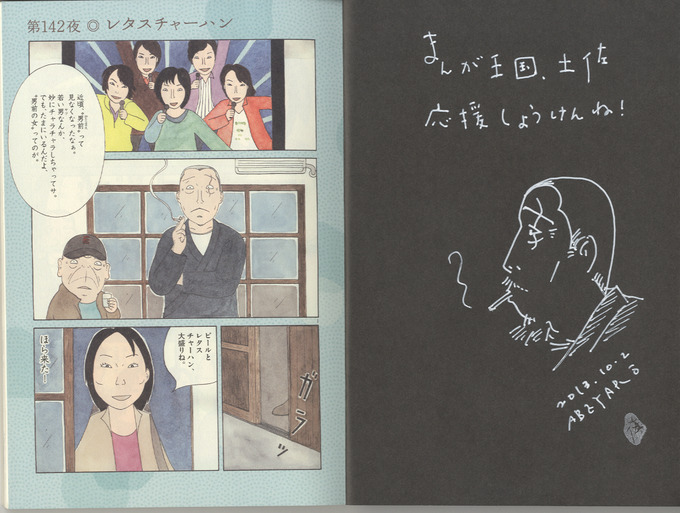 第142夜 ◎ レタスチャーハン
近頃、"男前"って
見なくなったなぁ。
若い男なんか、
妙にチャラチャラしちゃってサ。
でも、たまにいるんだよ、
"男前の女"ってのが。
ガラッ
ビールと
レタス
チャーハン、
大盛りね。
ほら来た!
まんが王国、土佐
応援しょうけんね!
2013.10.2
ABE YARO